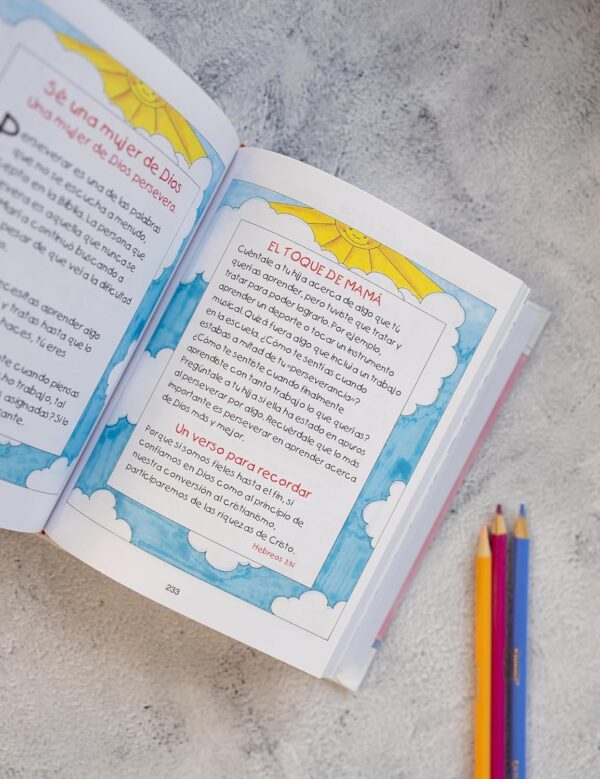 Sé una mujer de Dios
Una mujer de Dios persevera.
Perseverar es una de las palabras
que no se escucha a menudo,
en la Biblia. La persona que
es aquella que nunca se
María continuó buscando a
pesar de que veía la dificultad
necesitas aprender algo
y tratas hasta que lo
haces, tú eres
cuando piensas
trabajo, tal
asignadas? Si lo
EL TOQUE DE MAMÁ
Cuéntale a tu hija acerca de algo que tú
querías aprender, pero tuviste que tratar y
tratar para poder lograrlo. Por ejemplo,
aprender un deporte o tocar un instrumento
musical. Quizá fuera algo que incluía un trabajo
en la escuela. ¿Cómo te sentías cuando
estabas a mitad de tu «perseverancia»?
¿Cómo te sentiste cuando finalmente
aprendiste con tanto trabajo lo que querías?
Pregúntale a tu hija si ella ha estado en apuros
al perseverar por algo. Recuérdale que lo más
importante es perseverar en aprender acerca
de Dios más y mejor.
Un verso para recordar
Porque si somos fieles hasta el fin, si
confiamos en Dios como al principio de
nuestra conversión al cristianismo,
participaremos de las riquezas de Cristo.
Hebreos 3:14
233